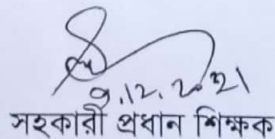 9.12.2021
সহকারী প্রধান শিক্ষক